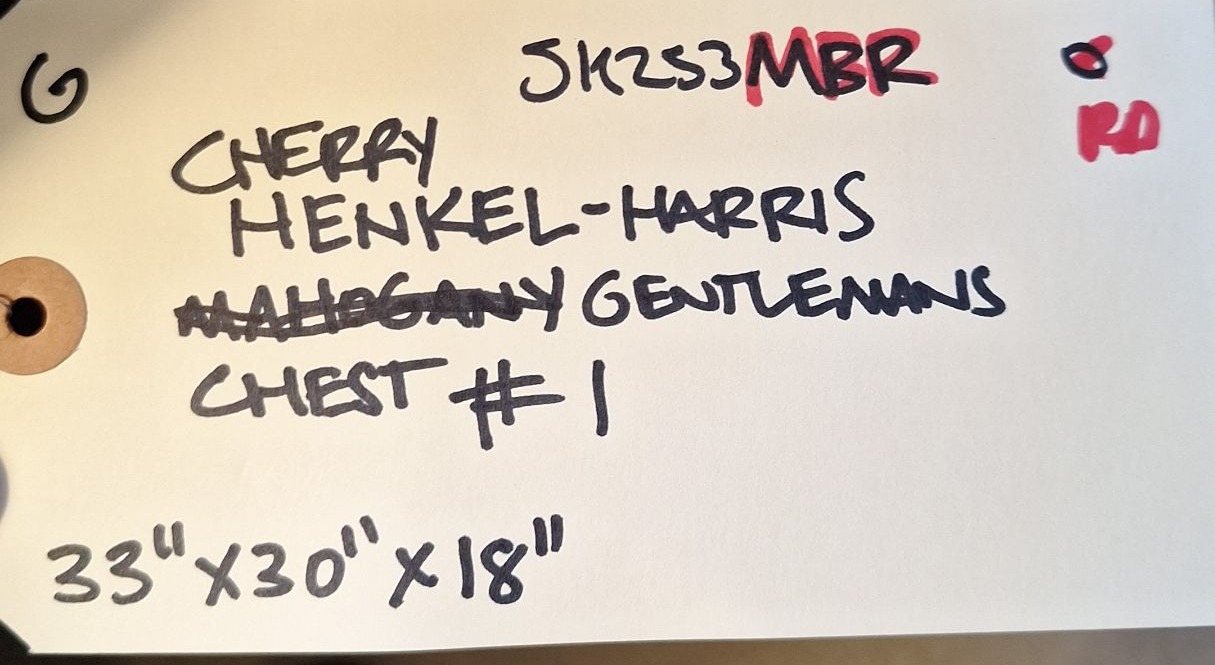 G
JK253MBR
RD
CHERRY
HENKEL-HARRIS
MAHOGANY GENTLEMANS
CHEST # 1
33" X 30" X 18"